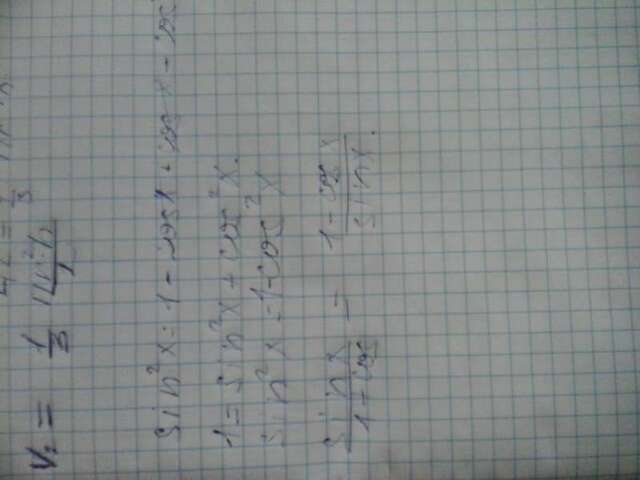 V₂ = 1/3 πr²h/2
sin²x = 1 - cosx + cosx - cos
1 = sin²x + cos²x.
sin²x = 1-cos²x
sinx/1-cos = 1-cosx/sinx.